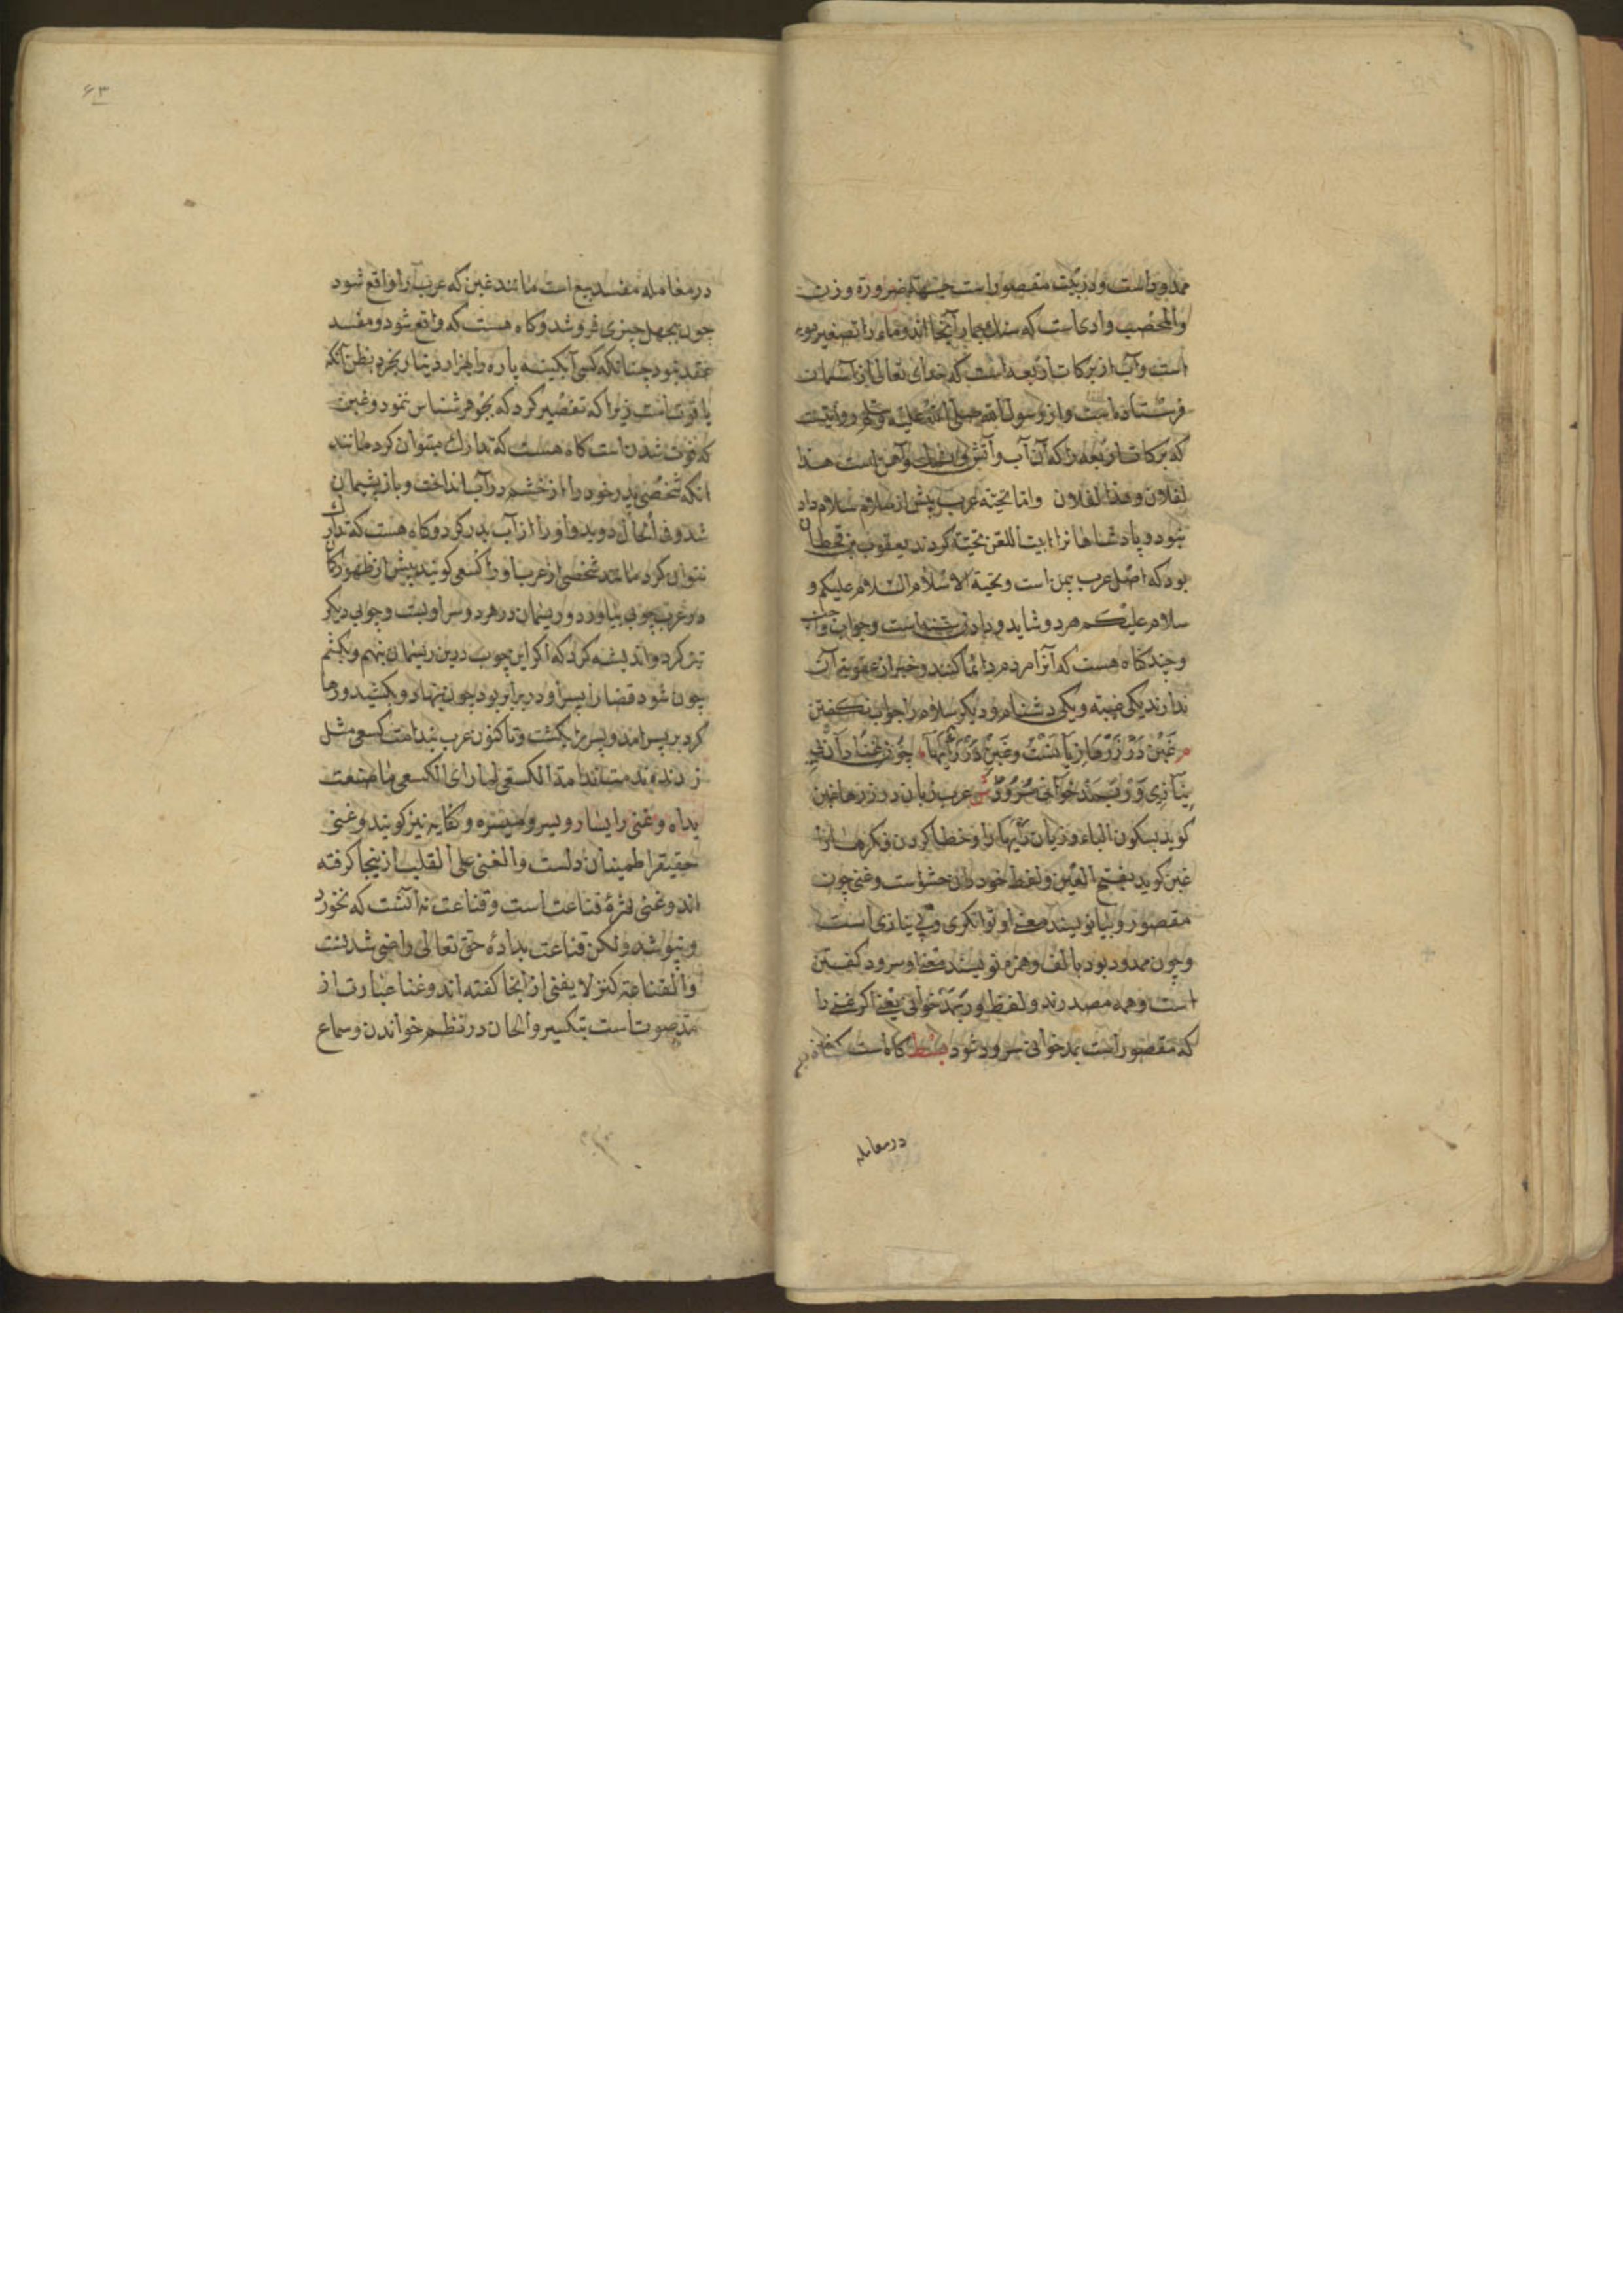 ممدود است و در بیت مقصور است جهة ضرورة وزن
والمحصب وادی است که سنك بسیار آنجا اند و ماء را تصغیر مویه
است و آب از برکات اربعه است که خدای تعالی از آسمان
فرستاده است و از رسول الله صلی الله علیه وسلم روایت
که برکات اربعه را که آن آب و آتش و نمك و آهن است هذا
لفلان وهذا لفلان واما تحیته عرب پیش از سلام سلام داد
نبود و پادشاهانرا ابیت اللعن تحیته کردند یعقوب بن قحطان
بود که اصل عرب یمن است و تحیة الاسلام السلام علیکم و
سلام علیکم هر دو شاید و دادن سنت است و جواب واجب
و چند کاه هست که آنرا مردم دائما کنند و خبر از عقوبة آن
ندارند یکی غیبة و یکی دشنام و دیکر سلام را جواب نکفتن
غبن در زرها زیانست و غبن در رایها چون غنا دان بی
نیازی ور بمد خوانی سرود ش عرب زیان در زرها غبن
کوید بسکون الباء و زیان رایها را و خطا کردن فکرها را
غبن کوید بفتح الغین و لفظ خود دان حشو است و غنی چون
مقصور و بیا نویسند معنی او توانکری و بی نیازی است
و چون ممدود بود با الف و همزه نویسند معنی او سرود کفتن
است و همه مصدرند و لفظ ور بمد خوانی یعنی اکر غنی را
که مقصور است بمد خوانی سرود شود کاه است که غبن
در معامله
۶۳
در معامله مفسد بیع است مانند غبن که عرب را واقع شود
چون بجهل چیزی فروشد و کاه هست که واقع شود و مفسد
عقد نبود چنانکه کسی آبکینه پاره را بهزار دینار بخرد بظن آنکه
یاقوت است زیرا که تقصیر کرد که بجوهر شناس ننمود و غبن
که فوت شدن است کاه هست که تدارك میتوان کرد مانند
انکه شخصی پدر خود را از خشم در آب انداخت و باز پشیمان
شد و فی الحال دوید و او را از آب بدر کرد و کاه هست که تدارك
نتوان کرد مانند شخصی از عرب او را کسعی کویند پیش از ظهور کمان
در عرب چوبی بیاورد و ریسمان در هر دو سر او بست و چوبی دیکر
تیز کرد و اندیشه کرد که اکر این چوب درین ریسمان بنهم و بکشم
چون شود قضا را پسر او در برابر بود چون بنهاد و بکشید و رها
کرد بر پسر امد و پسر را بکشت و تا کنون عرب بندامت کسعی مثل
زدند ندمت ندامة الکسعی لما رای الکسعی ما صنعت
یداه و غنی را یسار و یسر و میسره و کفایه نیز کویند و غنی
حقیقی اطمینان دلست و الغنی علی القلب از ینجا کرفته
اند و غنی ثمرهٔ قناعت است و قناعت نه آنست که نخورد
و نپوشد ولکن قناعت بدادهٔ حق تعالی راضی شدنست
والقناعة کنز لا یفنی از انجا کفته اند و غنا عبارت از
مد صوت است بتکسیر والحان در نظم خواندن و سماع